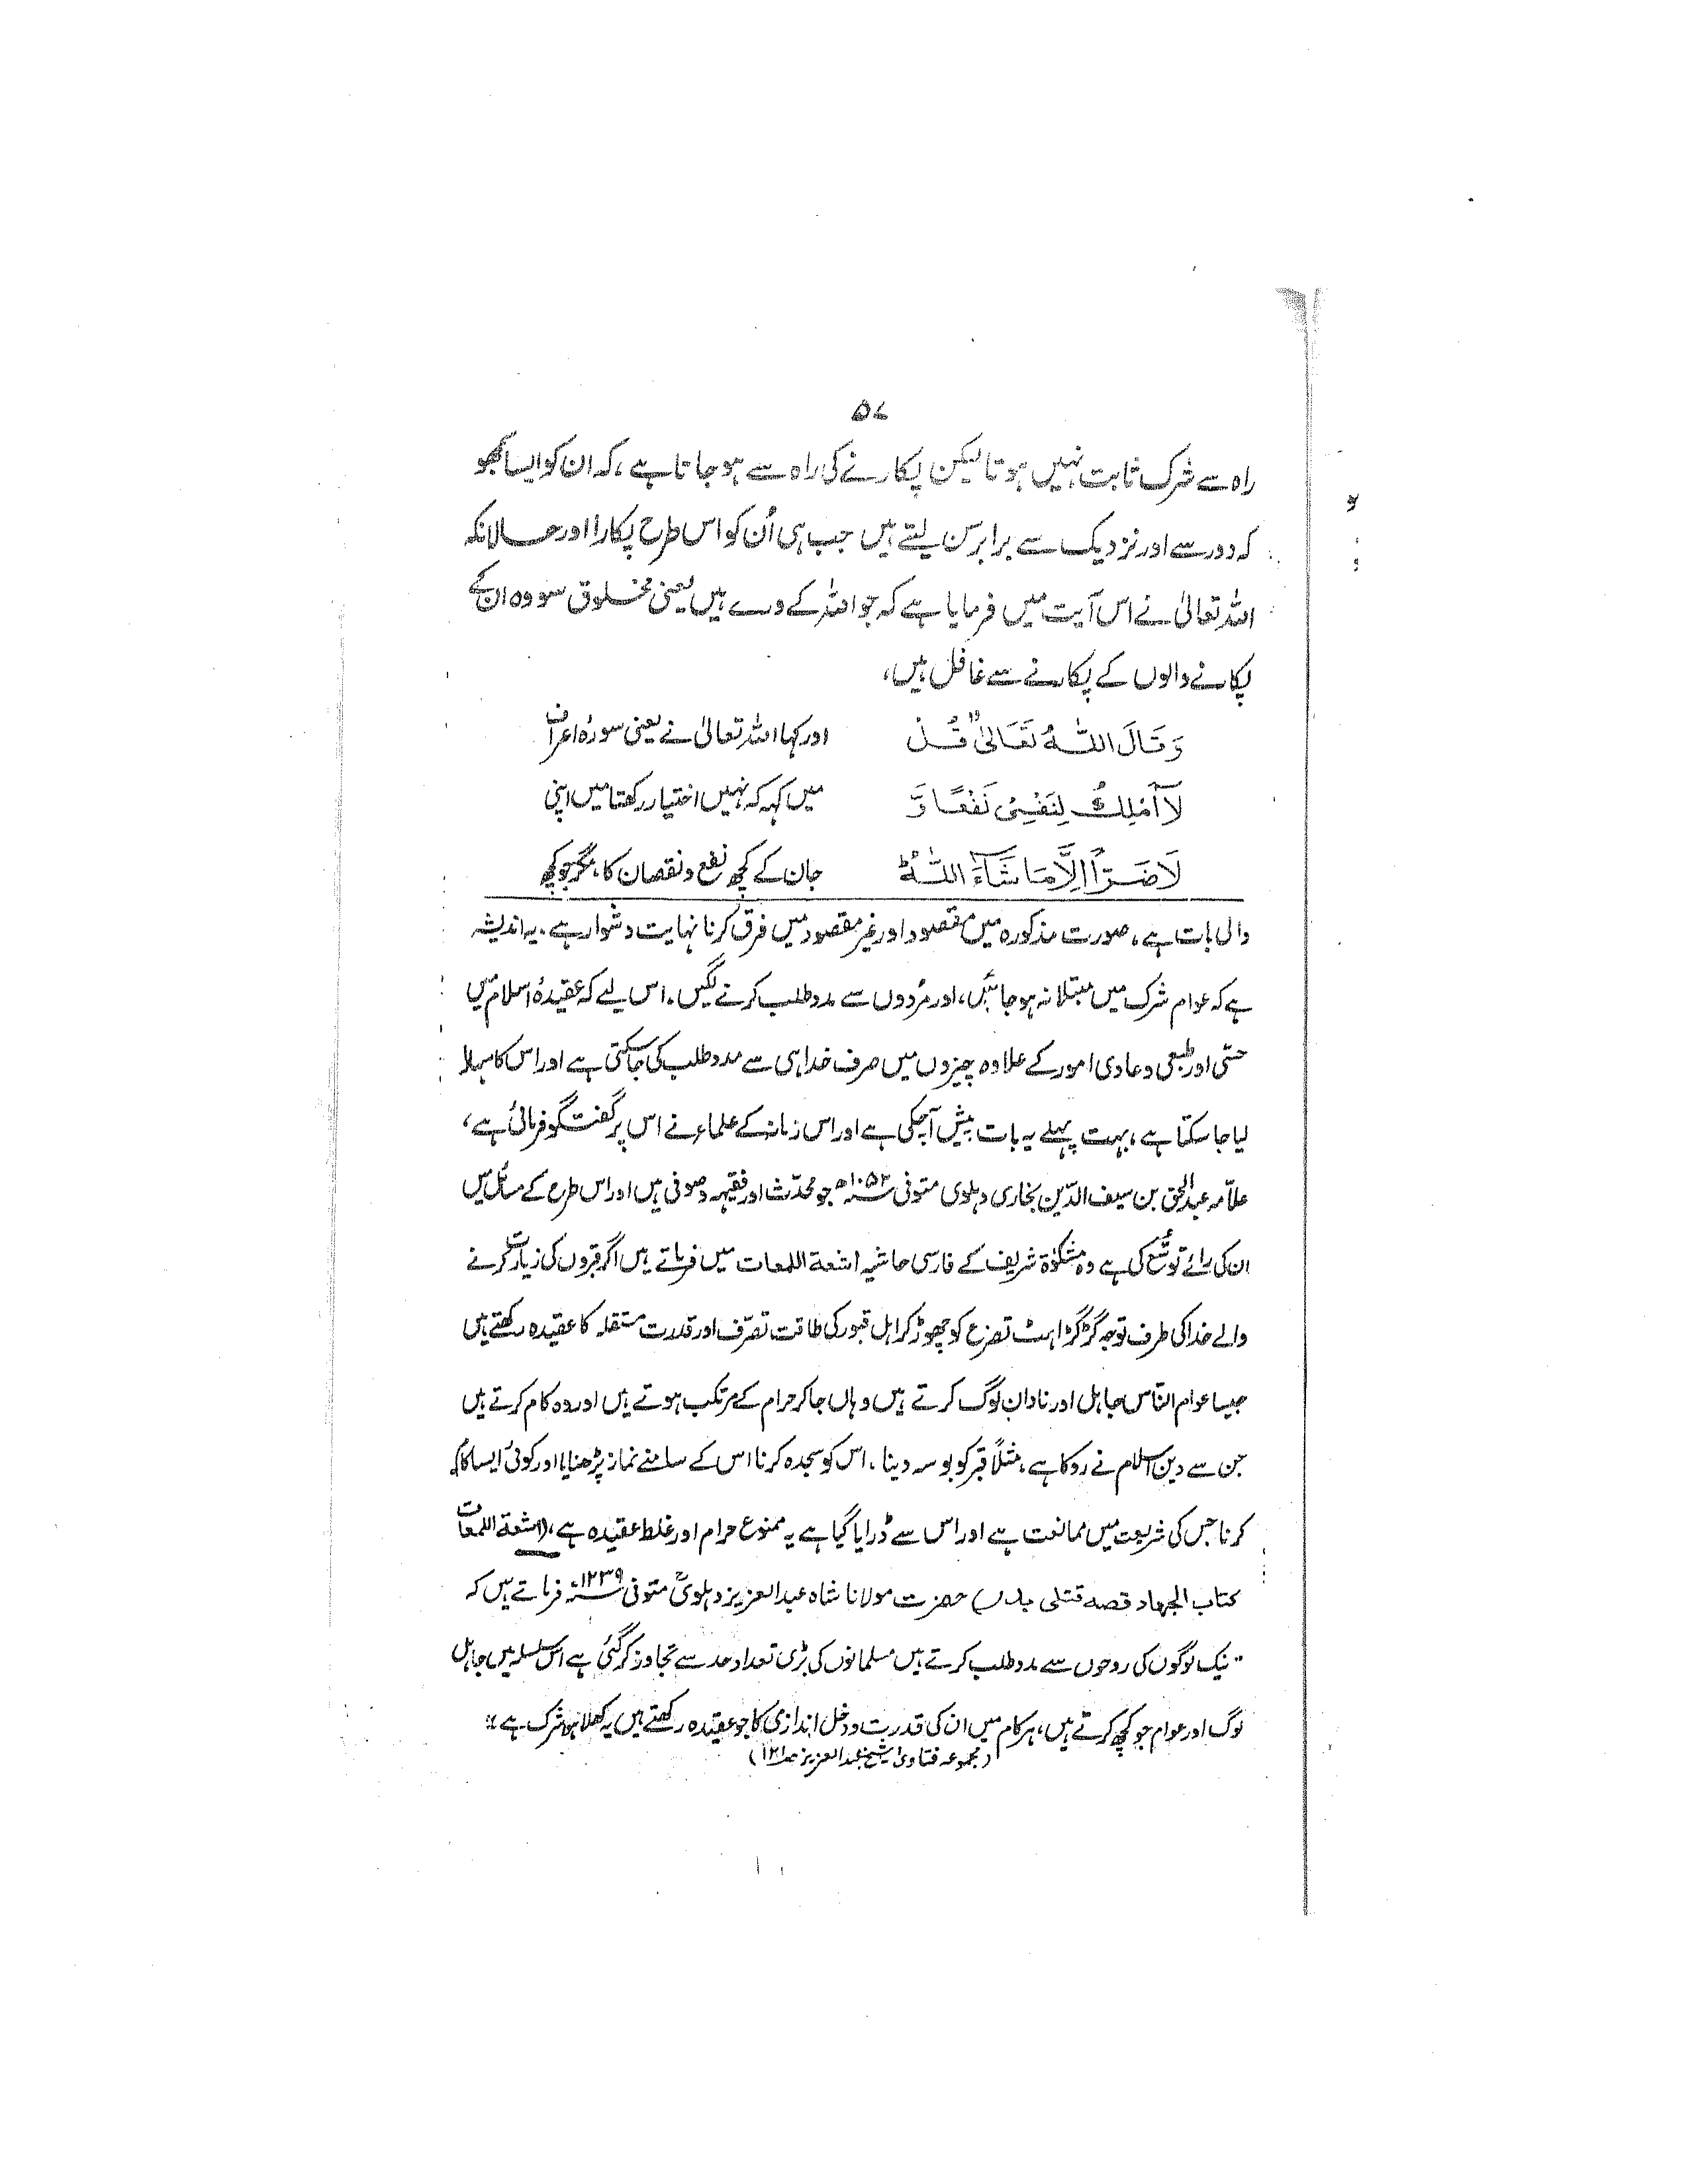 ۵۷
راہ سے شرک ثابت نہیں ہوتا لیکن پکارنے کی راہ سے ہو جاتا ہے، کہ ان کو ایسا سمجھو
کہ دور سے اور نزدیک سے برابر سن لیتے ہیں جب ہی اُن کو اس طرح پکارا اور حالانکہ
اللہ تعالیٰ نے اس آیت میں فرمایا ہے کہ جو اللہ کے ورے ہیں یعنی مخلوق سو وہ ان کے
پکارنے والوں کے پکارنے سے غافل ہیں،
وَقَالَ اللّٰهُ تَعَالٰی قُلْ اور کہا اللہ تعالیٰ نے یعنی سورۂ اعراف
لَآ اَمْلِكُ لِنَفْسِیْ نَفْعًا وَّ میں کہہ کہ نہیں اختیار رکھتا میں اپنی
لَا ضَرًّا اِلَّا مَا شَآءَ اللّٰهُ ؕ جان کے کچھ نفع و نقصان کا، مگر جو کچھ
والی بات ہے، صورت مذکورہ میں مقصود اور غیر مقصود میں فرق کرنا نہایت دشوار ہے۔ یہ اندیشہ
ہے کہ عوام شرک میں مبتلا نہ ہو جائیں، اور مُردوں سے مدد طلب کرنے لگیں۔ اس لیے کہ عقیدۂ اسلام میں
حسّی اور طبعی و عادی امور کے علاوہ چیزوں میں صرف خدا ہی سے مدد طلب کی جا سکتی ہے اور اس کا سہارا
لیا جا سکتا ہے، بہت پہلے یہ بات پیش آچکی ہے اور اس زمانہ کے علماء نے اس پر گفتگو فرمائی ہے،
علامہ عبدالحق بن سیف الدّین بخاری دہلوی متوفی ۱۰۵۲ھ جو محدّث اور فقیہہ و صوفی ہیں اور اس طرح کے مسائل میں
ان کی رائے توسّع کی ہے وہ مشکوٰۃ شریف کے فارسی حاشیہ اشعۃ اللمعات میں فرماتے ہیں اگر قبروں کی زیارت کرنے
والے خدا کی طرف توجہ گڑگڑاہٹ تضرع کو چھوڑ کر اہل قبور کی طاقت تصرّف اور قدرت مستقلہ کا عقیدہ رکھتے ہیں
جیسا عوام النّاس جاہل اور نادان لوگ کرتے ہیں وہاں جا کر حرام کے مرتکب ہوتے ہیں اور وہ کام کرتے ہیں
جن سے دین اسلام نے روکا ہے، مثلاً قبر کو بوسہ دینا، اس کو سجدہ کرنا اس کے سامنے نماز پڑھنا یا اور کوئی ایسا کام
کرنا جس کی شریعت میں ممانعت ہے اور اس سے ڈرایا گیا ہے یہ ممنوع حرام اور غلط عقیدہ ہے، (اشعۃ اللمعات
کتاب الجہاد قصہ قتلی بدر) حضرت مولانا شاہ عبدالعزیز دہلویؒ متوفی ۱۲۳۹ھ فرماتے ہیں کہ
" نیک لوگوں کی روحوں سے مدد طلب کرتے ہیں مسلمانوں کی بڑی تعداد حد سے تجاوز کر گئی ہے اس سلسلہ میں جاہل
لوگ اور عوام جو کچھ کرتے ہیں، ہر کام میں ان کی قدرت و دخل اندازی کا جو عقیدہ رکھتے ہیں یہ کھلا ہوا شرک ہے "
(مجموعہ فتاویٰ شیخ عبدالعزیز صـ۱۲۱)